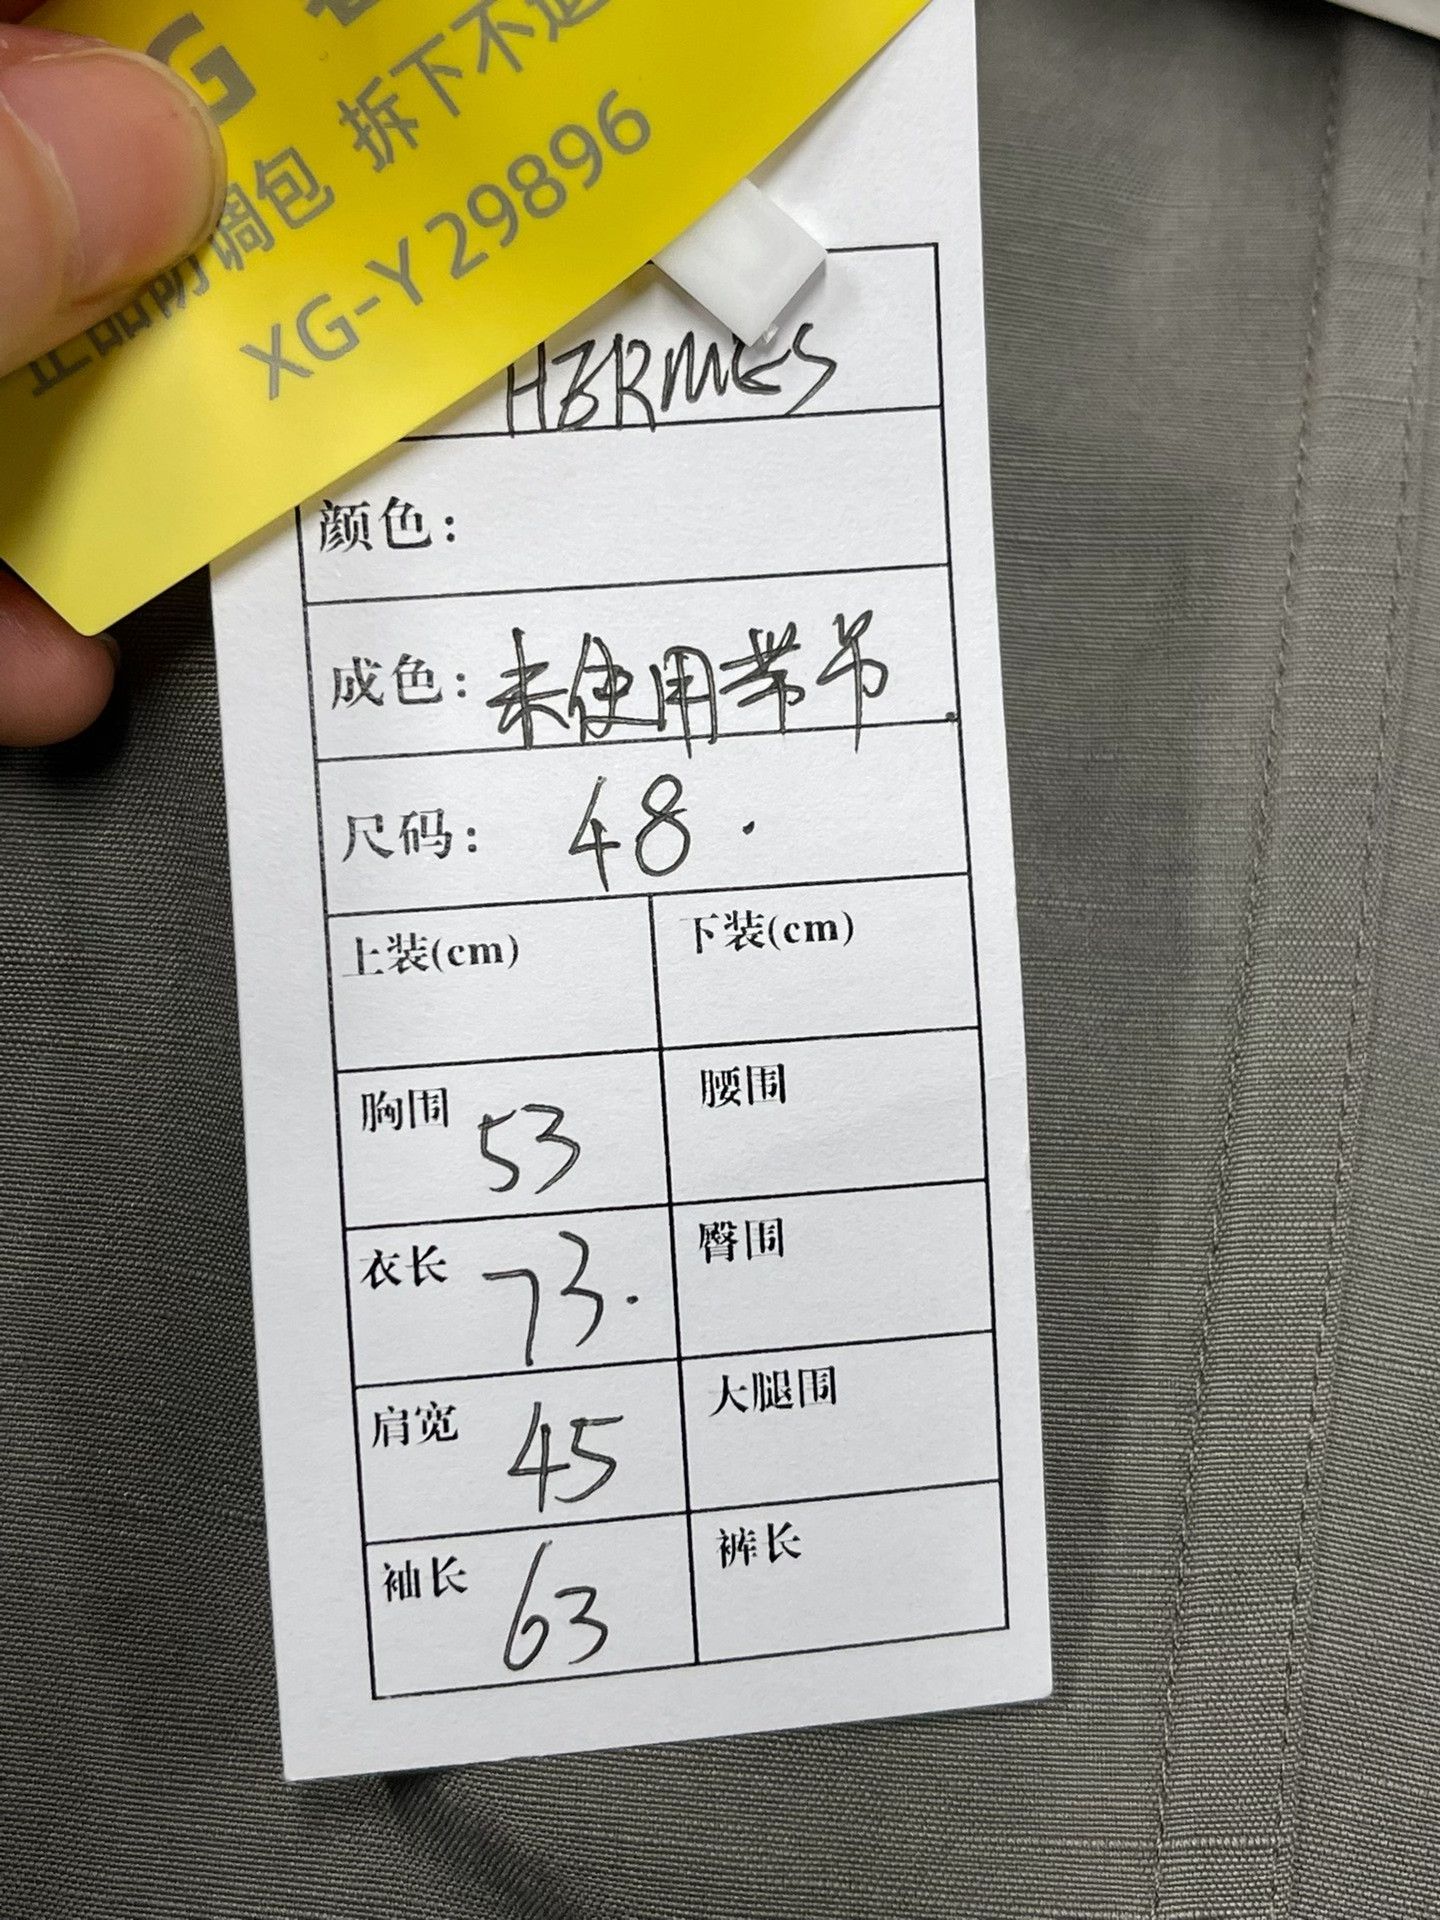 G
拆下不退
正品防调包
XG-Y29896
HERMES
颜色:
成色: 未使用带吊
尺码: 48.
上装(cm) 下装(cm)
胸围 53 腰围
衣长 73. 臀围
肩宽 45 大腿围
袖长 63 裤长